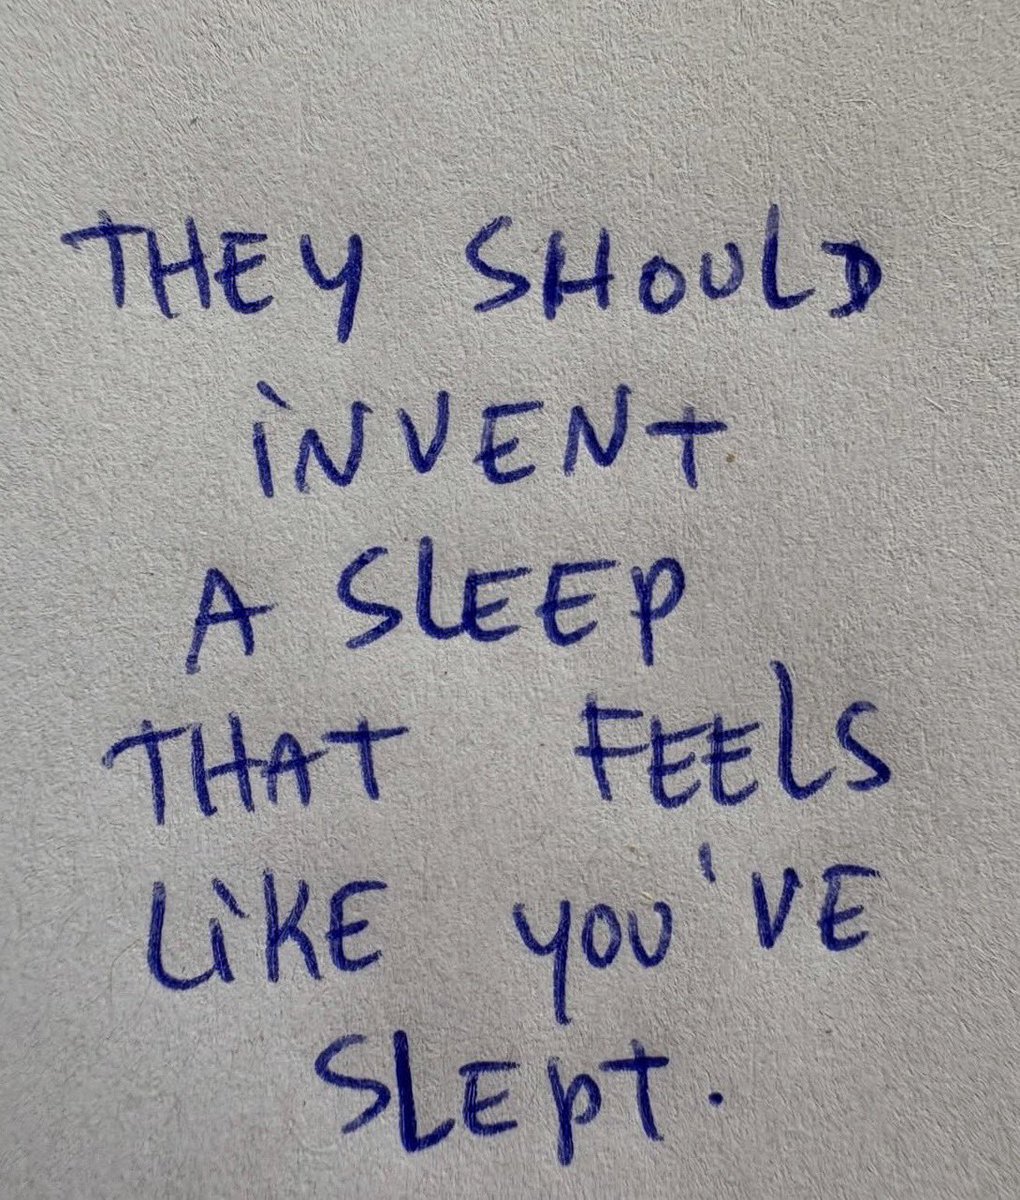 THEY SHOULD
iNVENT
A SLEEP
THAT FEELS
LiKE YOU'VE
SLEPT.